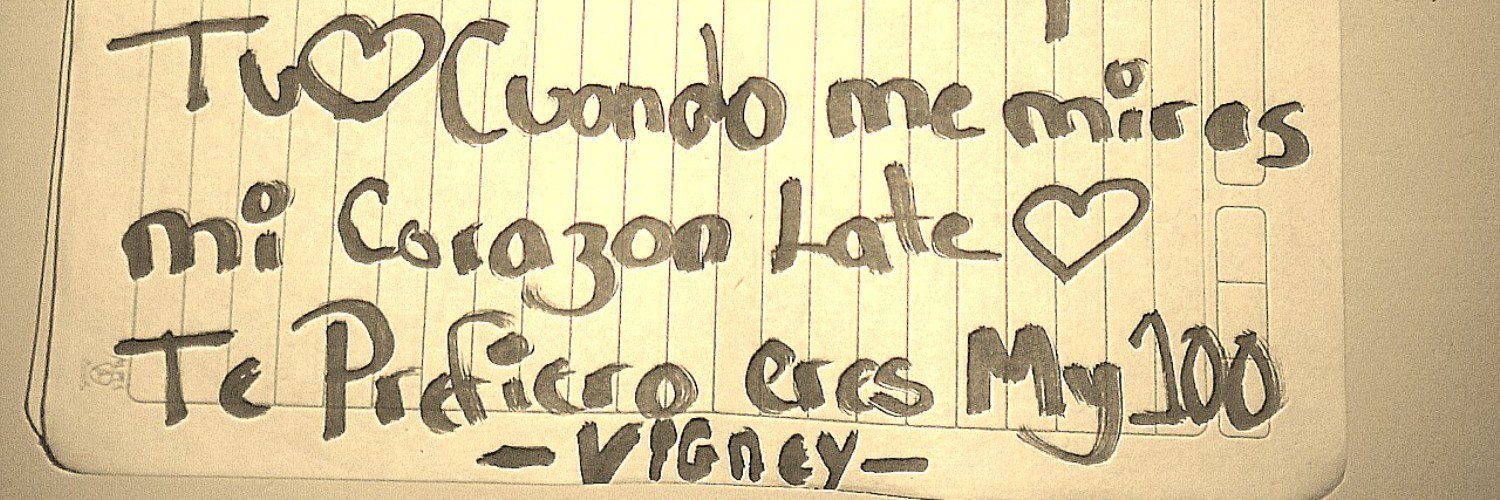 Tu Cuando me miras
mi Corazon Late
Te Prefiero eres My 100
- VIGney -